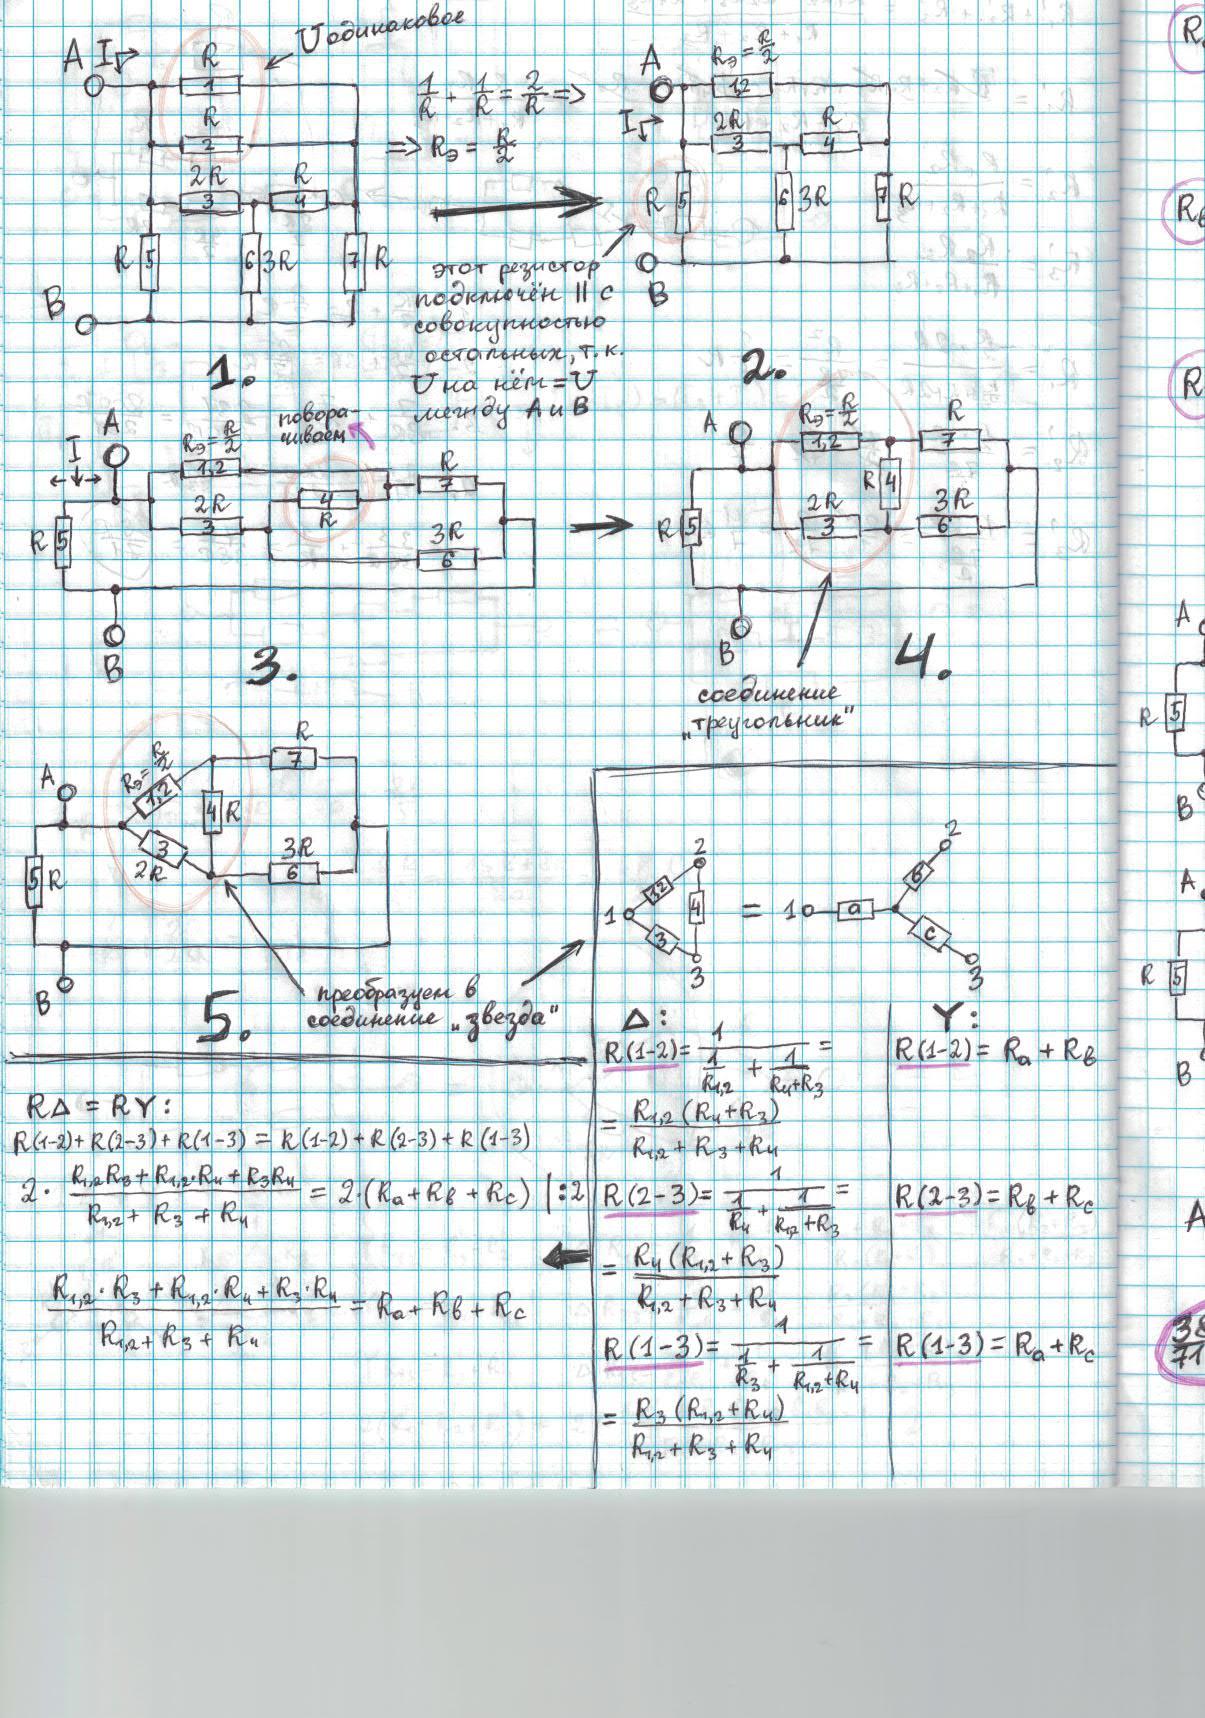 U одинаковое
A I
R
1
R
2
2R
3
R
4
R 5
6 3R
7 R
B
1.
1/R + 1/R = 2/R =>
=> Rэ = R/2
этот резистор
подключён || с
совокупностью
остальных, т.к.
U на нём = U
между A и B
A
Rэ = R/2
1,2
I
2R
3
R
4
R 5
6 3R
7 R
B
2.
A
I
Rэ = R/2
1,2
повора-
чиваем
4
R
R
7
2R
3
3R
6
R 5
B
3.
A
Rэ = R/2
1,2
R
7
R 4
2R
3
3R
6
R 5
B
4.
соединение
„треугольник"
A
Rэ = R/2
1,2
R
7
4 R
3
2R
3R
6
5 R
B
5.
преобразуем в
соединение „звезда"
1 2 3
1,2
4
3
=
1 2 3
a
в
c
Δ:
R(1-2) = 1/(1/R1,2 + 1/(R4+R3)) =
= R1,2(R4+R3)/(R1,2 + R3 + R4)
R(2-3) = 1/(1/R4 + 1/(R1,2+R3)) =
= R4(R1,2+R3)/(R1,2+R3+R4)
R(1-3) = 1/(1/R3 + 1/(R1,2+R4)) =
= R3(R1,2+R4)/(R1,2+R3+R4)
Y:
R(1-2) = Ra + Rв
R(2-3) = Rв + Rc
R(1-3) = Ra + Rc
RΔ = RY:
R(1-2) + R(2-3) + R(1-3) = R(1-2) + R(2-3) + R(1-3)
2 · (R1,2R3 + R1,2·R4 + R3R4)/(R1,2 + R3 + R4) = 2·(Ra + Rв + Rc) |:2
(R1,2·R3 + R1,2·R4 + R3·R4)/(R1,2 + R3 + R4) = Ra + Rв + Rc
A
R 5
B
A
R 5
B
A